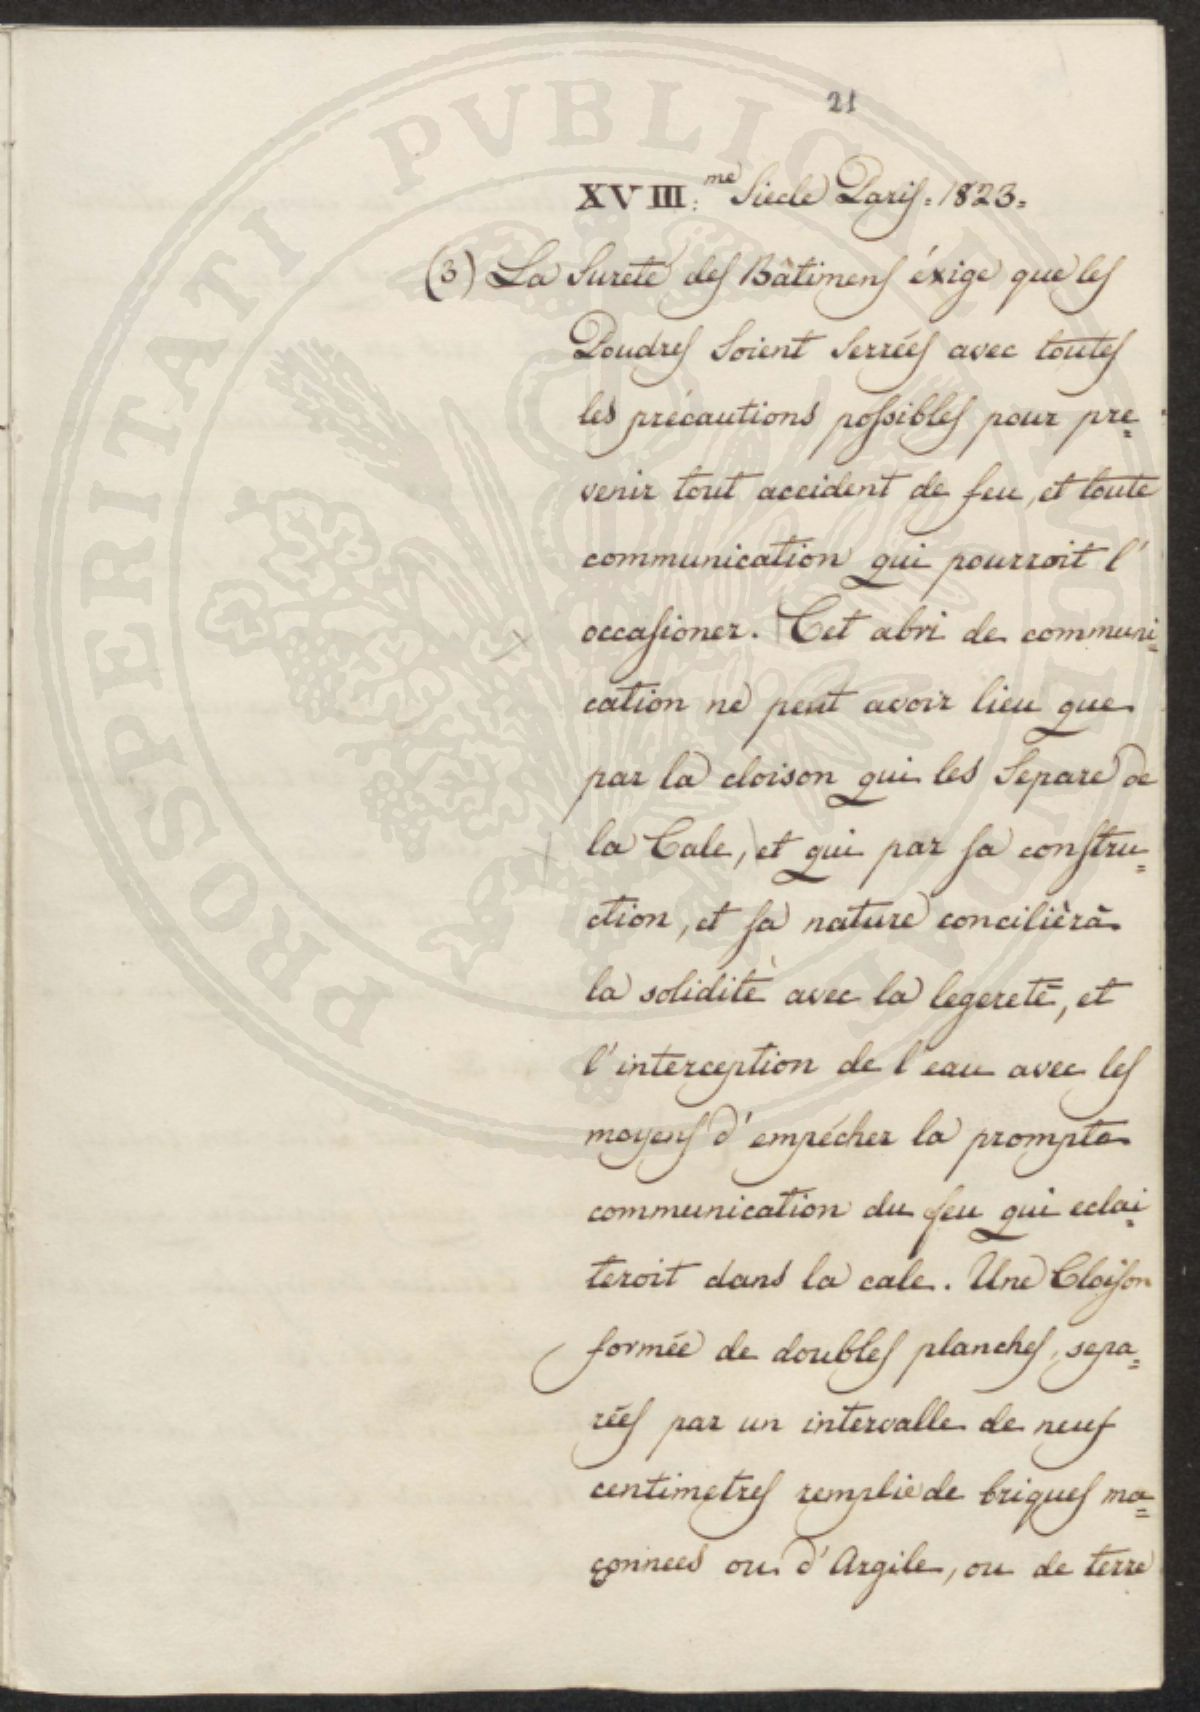 21
XVIII:me Siecle Paris. 1823.
(3) La Sureté des Bâtimens éxige que les
Poudres Soient Serrées avec toutes
les précautions possibles pour pre=
venir tout accident de feu, et toute
communication qui pourroit l'
occasioner. Cet abri de communi=
cation ne peut avoir lieu que
par la cloison qui les Separe de
la Cale, et qui par sa constru=
ction, et sa nature concilièrà
la solidité avec la legereté, et
l'interception de l'eau avec les
moyens d'empécher la prompte
communication du feu qui eclai=
teroit dans la cale. Une Cloison
formée de doubles planches, sepa=
rées par un intervalle de neuf
centimetres remplie de briques ma=
çonnees ou d'Argile, ou de terre
PROSPERITATI PVBLICAE AVGENDAE